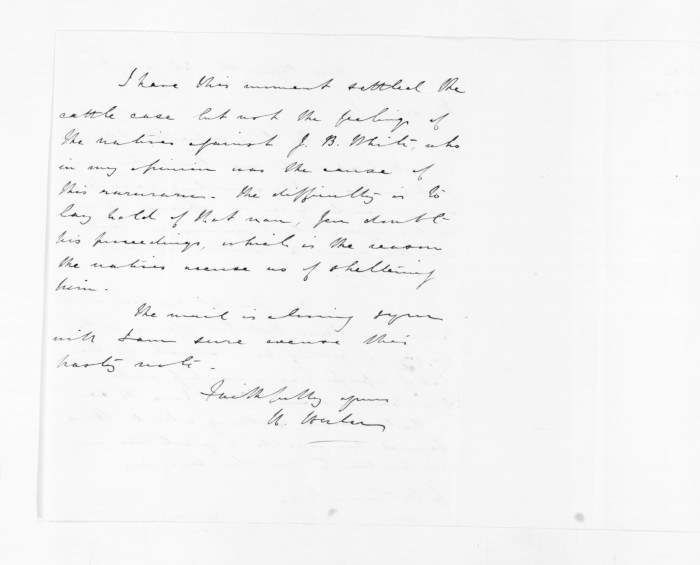 I have this moment settled the
cattle case but not the feelings of
the natives against J. B. White, who
in my opinion was the cause of
this . The difficulty is to
lay hold of that man, for doubt
his proceedings, which is the reason
the natives accuse us of sheltering
him.
The mail is closing & you
will I am sure excuse this
hasty note.
Faithfully yours